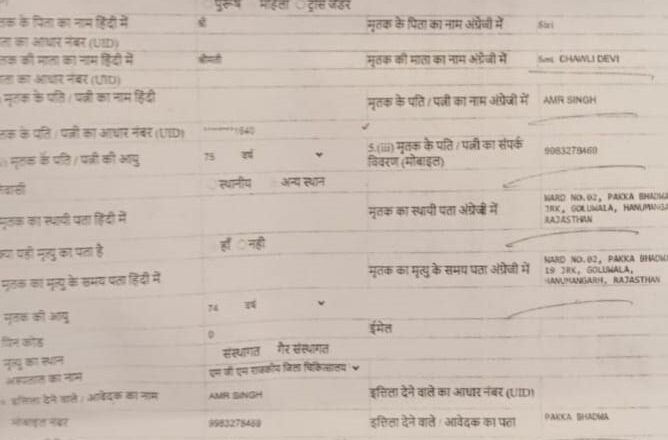 पुरूष महिला ट्रांस जेंडर
तक के पिता का नाम हिंदी में श्री मृतक के पिता का नाम अंग्रेजी में Sri
ता का आधार नंबर (UID)
तक की माता का नाम हिंदी में श्रीमती मृतक की माता का नाम अंग्रेजी में Smt. CHAWLI DEVI
ता का आधार नंबर (UID)
मृतक के पति / पत्नी का नाम हिंदी मृतक के पति / पत्नी का नाम अंग्रेजी में AMR SINGH
तक के पति / पत्नी का आधार नंबर (UID) ********1640
मृतक के पति / पत्नी की आयु 75 वर्ष 5.(iii) मृतक के पति / पत्नी का संपर्क विवरण (मोबाइल) 9983278469
वासी स्थानीय अन्य स्थान
मृतक का स्थायी पता हिंदी में मृतक का स्थायी पता अंग्रेजी में WARD NO.02, PAKKA
JRK, GOLUWALA,
RAJASTHAN
क्या यही मृत्यु का पता है हाँ नही
मृतक का मृत्यु के समय पता हिंदी में मृतक का मृत्यु के समय पता अंग्रेजी में WARD NO.02, PAKKA
19 JRK, GOLUWALA,
HANUMANGARH, RAJASTHAN
मृतक की आयु 74 वर्ष
पिन कोड 0 ईमेल
मृत्यु का स्थान संस्थागत गैर संस्थागत
अस्पताल का नाम एम जी एम राजकीय जिला चिकित्सालय
इत्तिला देने वाले / आवेदक का नाम AMR SINGH इत्तिला देने वाले का आधार नंबर (UID)
मोबाइल नंबर 9983278469 इत्तिला देने वाले / आवेदक का पता PAKKA BHADWA